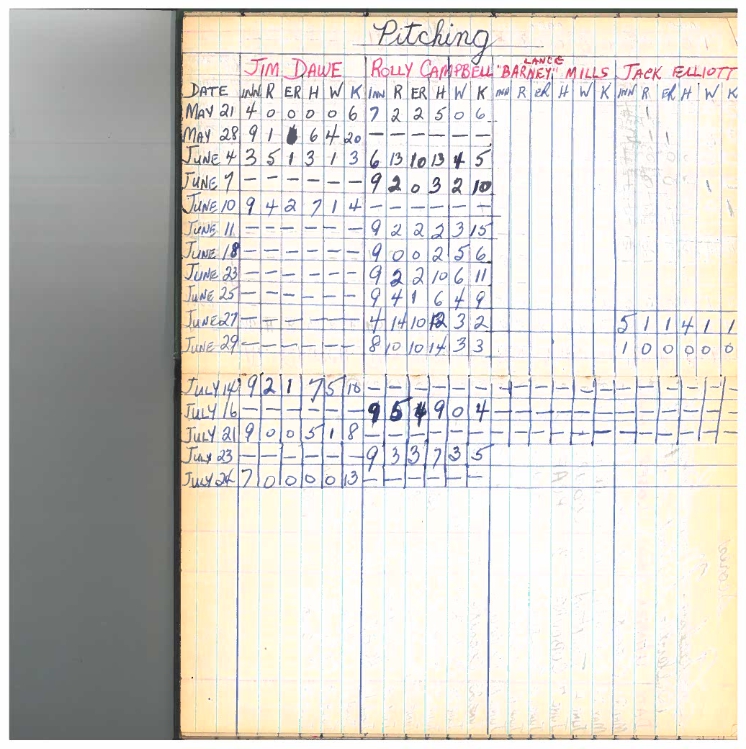 Pitching
JIM DAWE ROLLY CAMPBELL LANCE "BARNEY" MILLS JACK ELLIOTT
DATE INN R ER H W K INN R ER H W K INN R ER H W K INN R ER H W K
MAY 21 4 0 0 0 0 6 7 2 2 5 0 6
MAY 28 9 1 6 4 20 — — — — — —
JUNE 4 3 5 1 3 1 3 6 13 10 13 4 5
JUNE 7 — — — — — — 9 2 0 3 2 10
JUNE 10 9 4 2 7 1 4
JUNE 11 — — — — — — 9 2 2 2 3 15
JUNE 18 — — — — — — 9 0 0 2 5 6
JUNE 23 — — — — — — 9 2 2 10 6 11
JUNE 25 — — — — — — 9 4 1 6 4 9
JUNE 27 — — — — — — 4 14 10 12 3 2 5 1 1 4 1 1
JUNE 29 — — — — — — 8 10 10 14 3 3 1 0 0 0 0 0
JULY 14 9 2 1 7 5 — — — — — — — — — — — — — — — — —
JULY 16 — — — — — — 9 5 4 9 0 4 — — — — — — — — — — —
JULY 21 9 0 0 5 1 8 — — — — — — — — — — — — — — — — —
JULY 23 — — — — — — 9 3 3 7 3 5
JULY 7 0 0 0 0 13 — — — — — —